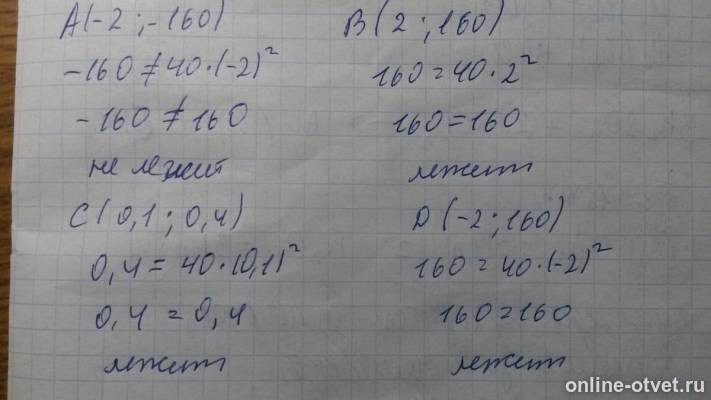 A(-2 ; -160)
-160 ≠ 40·(-2)²
-160 ≠ 160
не лежит
B(2 ; 160)
160 = 40·2²
160 = 160
лежит
C(0,1 ; 0,4)
0,4 = 40·(0,1)²
0,4 = 0,4
лежит
D(-2 ; 160)
160 = 40·(-2)²
160 = 160
лежит
online-otvet.ru